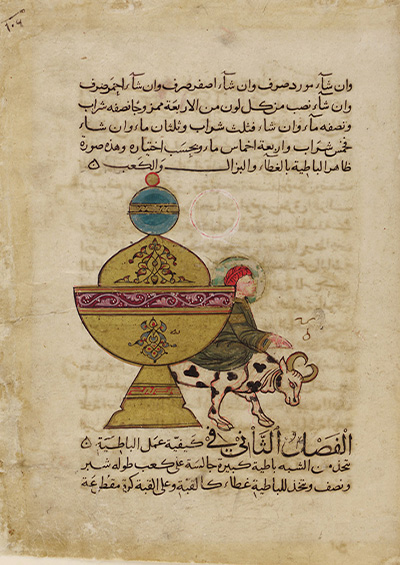 ١٠٦
وان شآء مورد صرف وان شآء اصفر صرف وان شآء احمر صرف
وان شآء نصب من كل لون من الاربعة ممزوجا نصفه شراب
ونصفه مآء وان شاء فثلث شراب وثلثان ماء وان شاء
فخمس شراب واربعة اخماس ماء وبحسب اختياره وهذه صورة
ظاهر الباطية بالغطاء والبزال والكعب ٥
الفصل الثاني في كيفية عمل الباطية ٥
تتخذ من الشبه باطية كبيرة جالسة على كعب طوله شبر
ونصف وتتخذ للباطية غطاء كالقبة وعلى القبة كرة مقطوعة